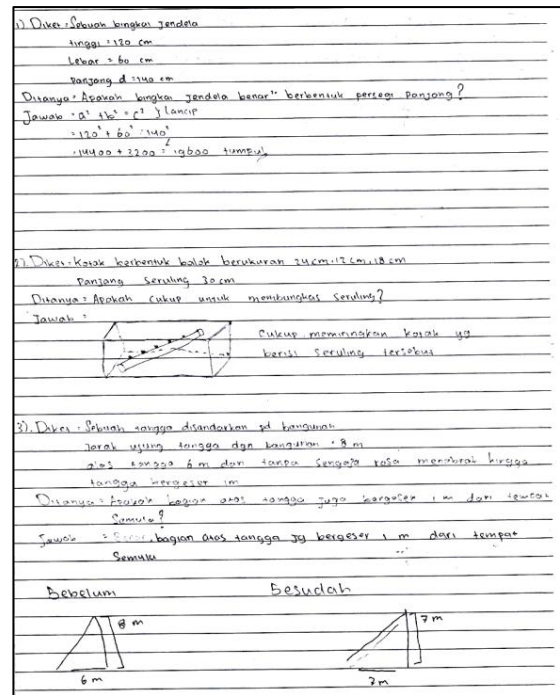 1) Diket = Sebuah bingkai jendela
tinggi = 120 cm
Lebar = 60 cm
Panjang d = 140 cm
Ditanya = Apakah bingkai jendela benar" berbentuk persegi panjang?
Jawab = a² + b² = c² } lancip
= 120² + 60² = 140²
= 14400 + 3200 = 19600 tumpul
2). Diket = Kotak berbentuk balok berukuran 24 cm, 12 cm, 18 cm
Panjang Seruling 30 cm
Ditanya = Apakah cukup untuk membungkus seruling?
Jawab =
Cukup memiringkan kotak yg
berisi seruling tersebut
3). Diket = Sebuah tangga disandarkan pd bangunan
Jarak ujung tangga dgn bangunan = 8 m
tangga 6 m dan tanpa sengaja rosa menabrak hingga
tangga bergeser 1m
Ditanya = Apakah bagian atas tangga juga bergeser 1 m dari tempat
Semula?
Jawab = bagian atas tangga jg bergeser 1 m dari tempat
Semula
Sebelum Sesudah
8 m 7 m
6 m 7m